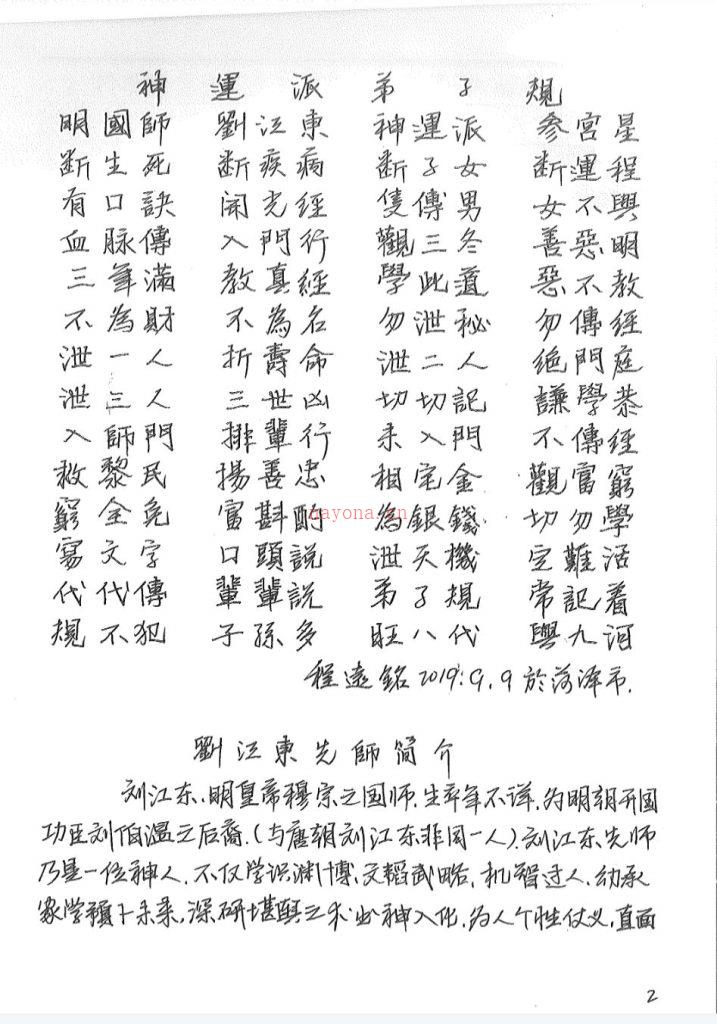 神運派弟子規
明國師 劉江東 神運派 参宮星
断生死 断疾病 断子女 断運程
有口訣 開光經 隻傳男 女不與
血脉傳 入門行 觀三冬 善惡明
三年滿 教真經 學此道 惡不教
不為財 不為名 勿泄秘 勿傳經
泄一人 折壽命 泄二人 絶門庭
泄三人 三世凶 切切記 謙學恭
入師門 排輩行 未入門 不傳經
救黎民 揚善忠 相宅金 觀富窮
窮全免 富斟酌 為銀錢 切勿學
寫文字 口頭説 泄天機 定難活
代代傳 輩輩説 弟子規 常記着
規不犯 子孫多 旺八代 與九河
程遠銘2019.9.9於菏泽市.
劉江東先師简介
刘江东,明皇帝穆宗之国师.生卒年不详,为明朝开国
功臣刘伯温之后裔.(与唐朝刘江东非同一人).刘江东先师
乃是一位神人.不仅学识渊博,文韬武略,机智过人.幼承
家学预卜未来,深研堪舆之术出神入化,为人个性仗义,直面
2
nayona.cn